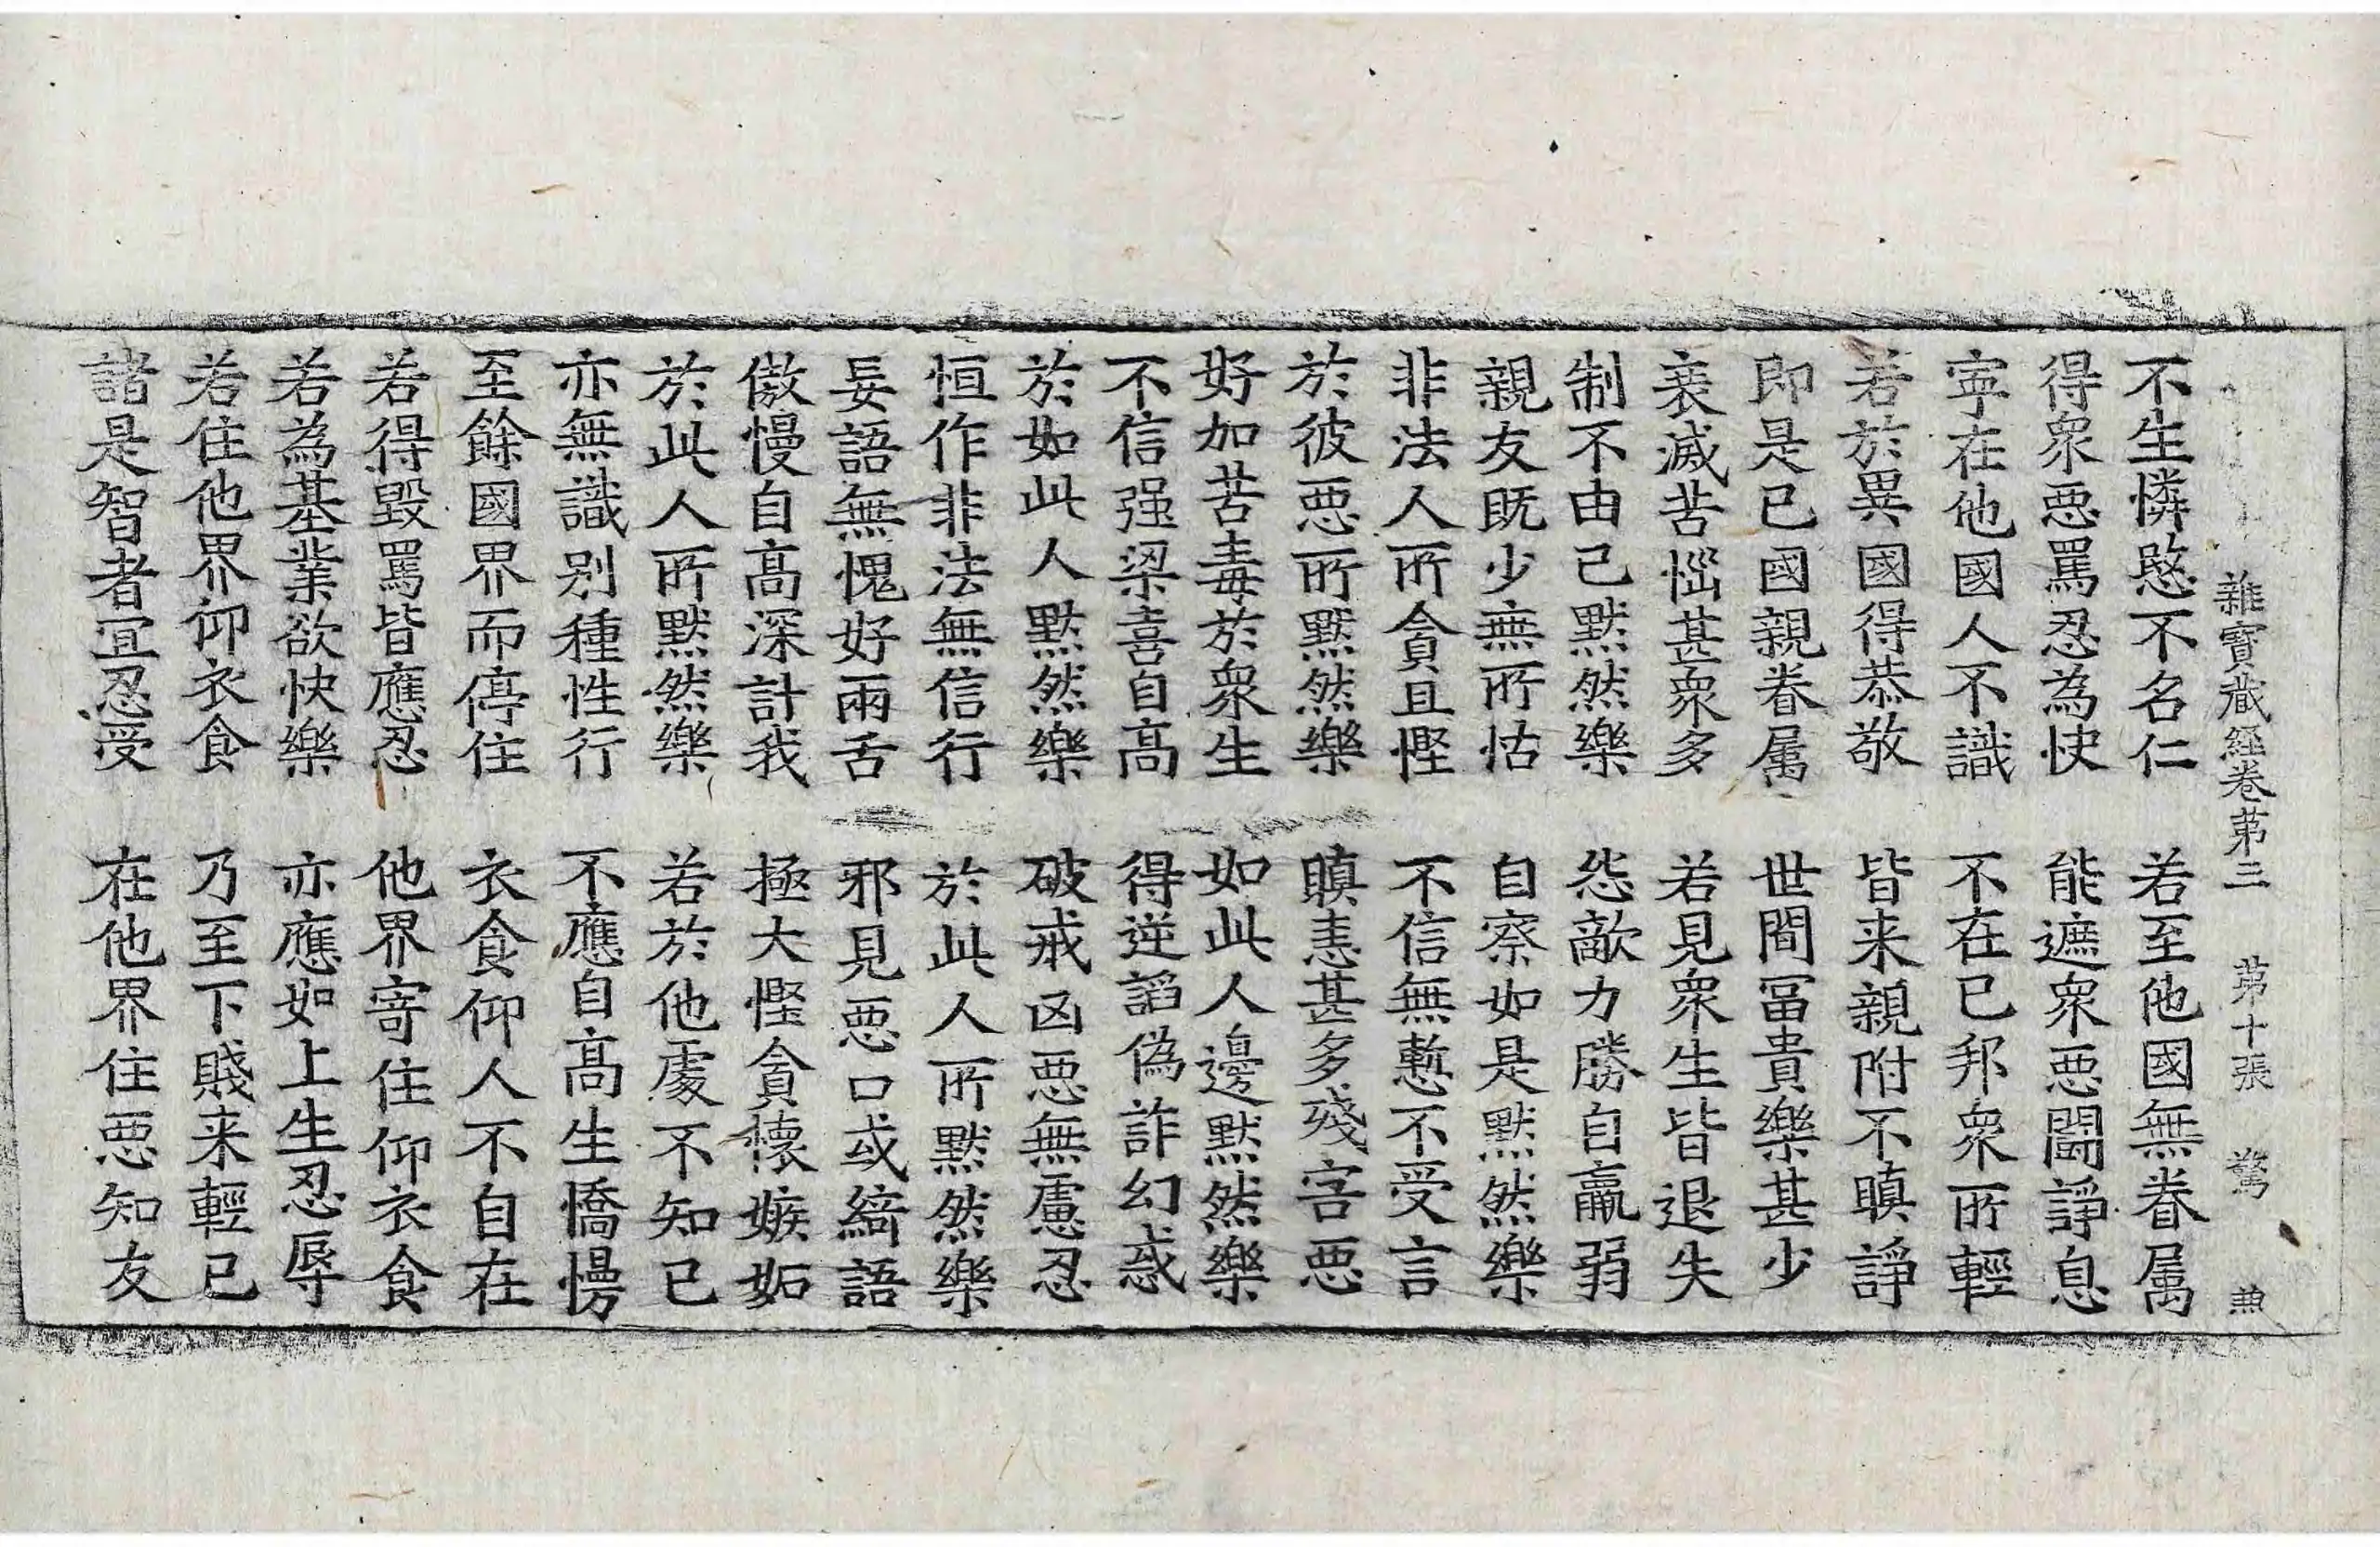 雜寶藏經卷第三　第十張　驚
不生憐愍不名仁　若至他國無眷属
得衆惡罵忍為快　能遮衆惡鬪諍息
寜在他國人不識　不在己邦衆所輕
若於異國得恭敬　皆来親附不瞋諍
即是己國親眷属　世間冨貴樂甚少
衰滅苦惱甚衆多　若見衆生皆退失
制不由己黙然樂　怨敵力勝自羸弱
親友既少無所怙　自察如是黙然樂
非法人所貪且慳　不信無慙不受言
於彼惡所黙然樂　瞋恚甚多殘害惡
好加苦毒於衆生　如此人邊黙然樂
不信强梁喜自高　得逆謟偽詐幻惑
於如此人黙然樂　破戒凶惡無慮忍
恒作非法無信行　於此人所黙然樂
妄語無愧好兩舌　邪見惡口或綺語
傲慢自高深計我　極大慳貪懐嫉妬
於此人所黙然樂　若於他處不知己
亦無識別種性行　不應自高生憍慢
至餘國界而停住　衣食仰人不自在
若得毀罵皆應忍　他界寄住仰衣食
若為基業欲快樂　亦應如上生忍辱
若住他界仰衣食　乃至下賤来輕己
諸是智者冝忍受　在他界住惡知友